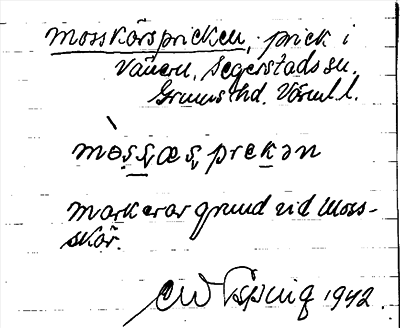 Mosskärspricken, prick i
Vänern, Segerstads sn,
Grums hd. Värml.l.
mòs̩ʂæʂprekən
markerar grund vid Moss-
skär.
1942.